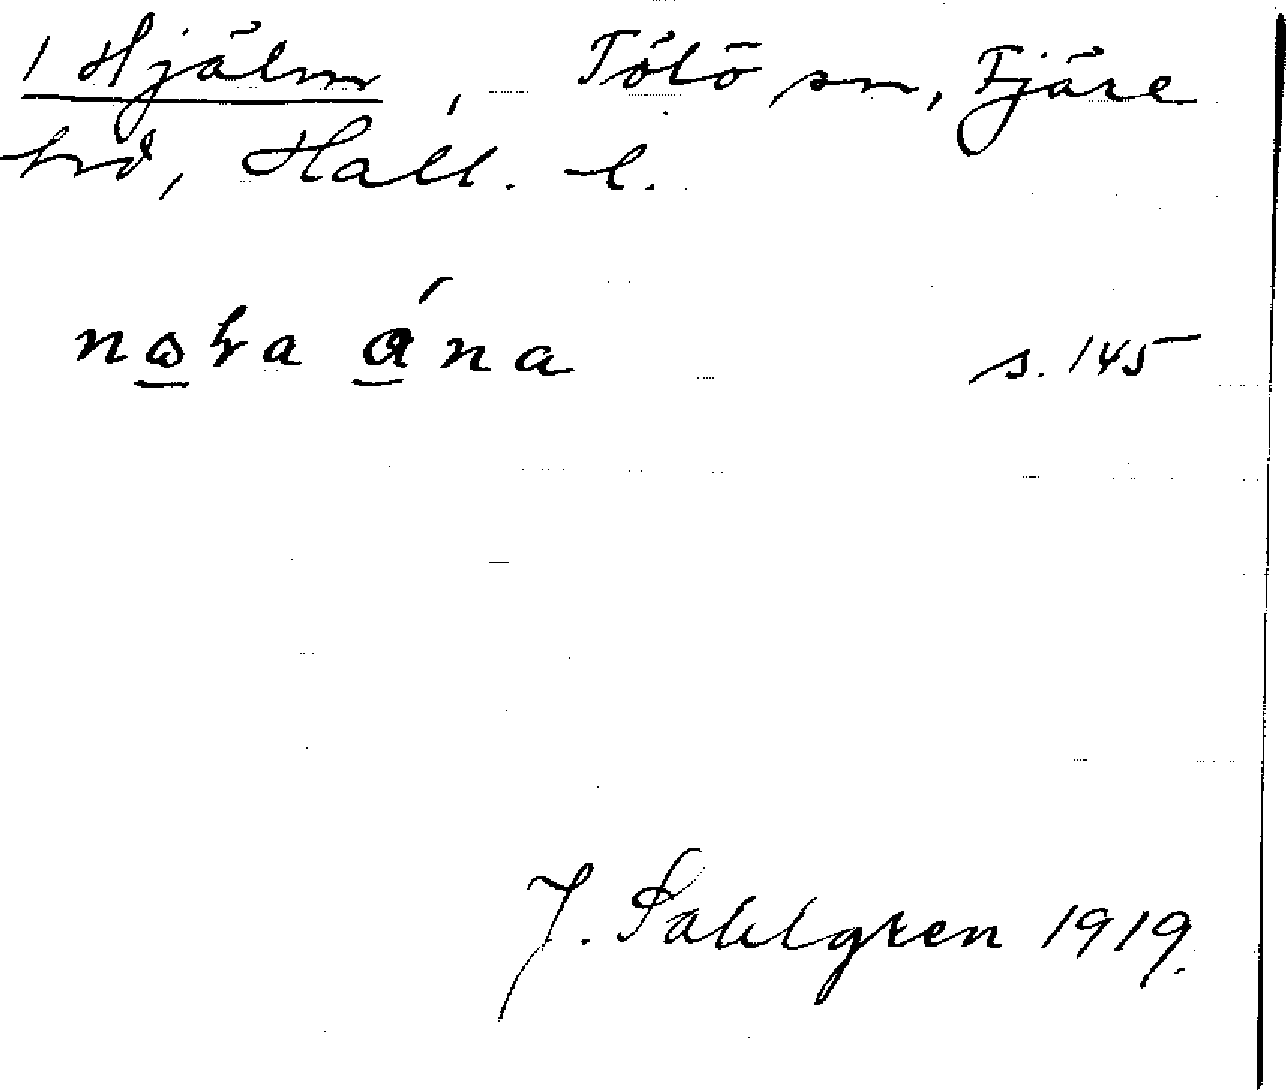 1 Hjälm, Tölö sn, Fjäre
hd, Hall. l.
s. 145
J. Sahlgren 1919.